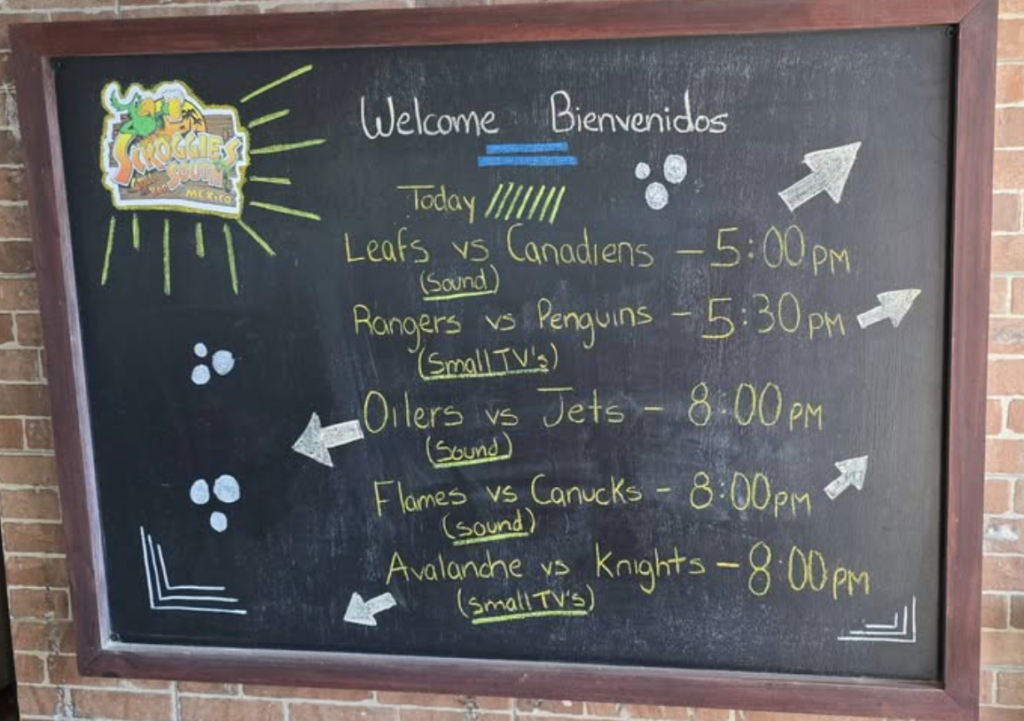 SCROGGIE'S
SOUTH
MEXICO
Welcome Bienvenidos
Today
Leafs vs Canadiens - 5:00 PM
(Sound)
Rangers vs Penguins - 5:30 PM
(Small TV's)
Oilers vs Jets - 8:00 PM
(Sound)
Flames vs Canucks - 8:00 PM
(sound)
Avalanche vs Knights - 8:00 PM
(small TV's)